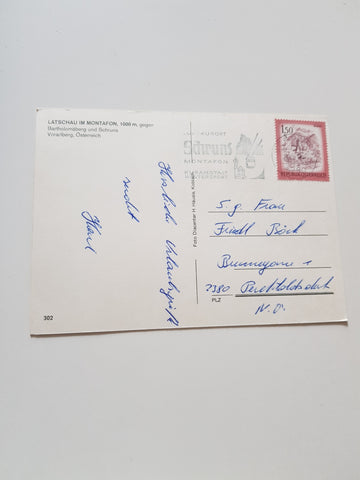 LATSCHAU IM MONTAFON, 1000 m, gegen
Bartholomäberg und Schruns
Vorarlberg, Österreich
Herzliche Urlaubsgrüße
sendet
Karl
302
LUFTKURORT
Schruns
MONTAFON
1.50
REPUBLIK ÖSTERREICH
S. g. Frau
Friedl Böck
Brunnerg. 1
2380 Perchtoldsdorf
PLZ
N. Ö.